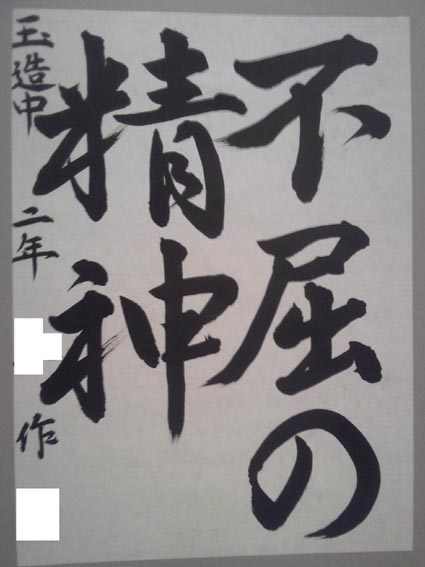 不屈の
精神
玉造中 二年 作